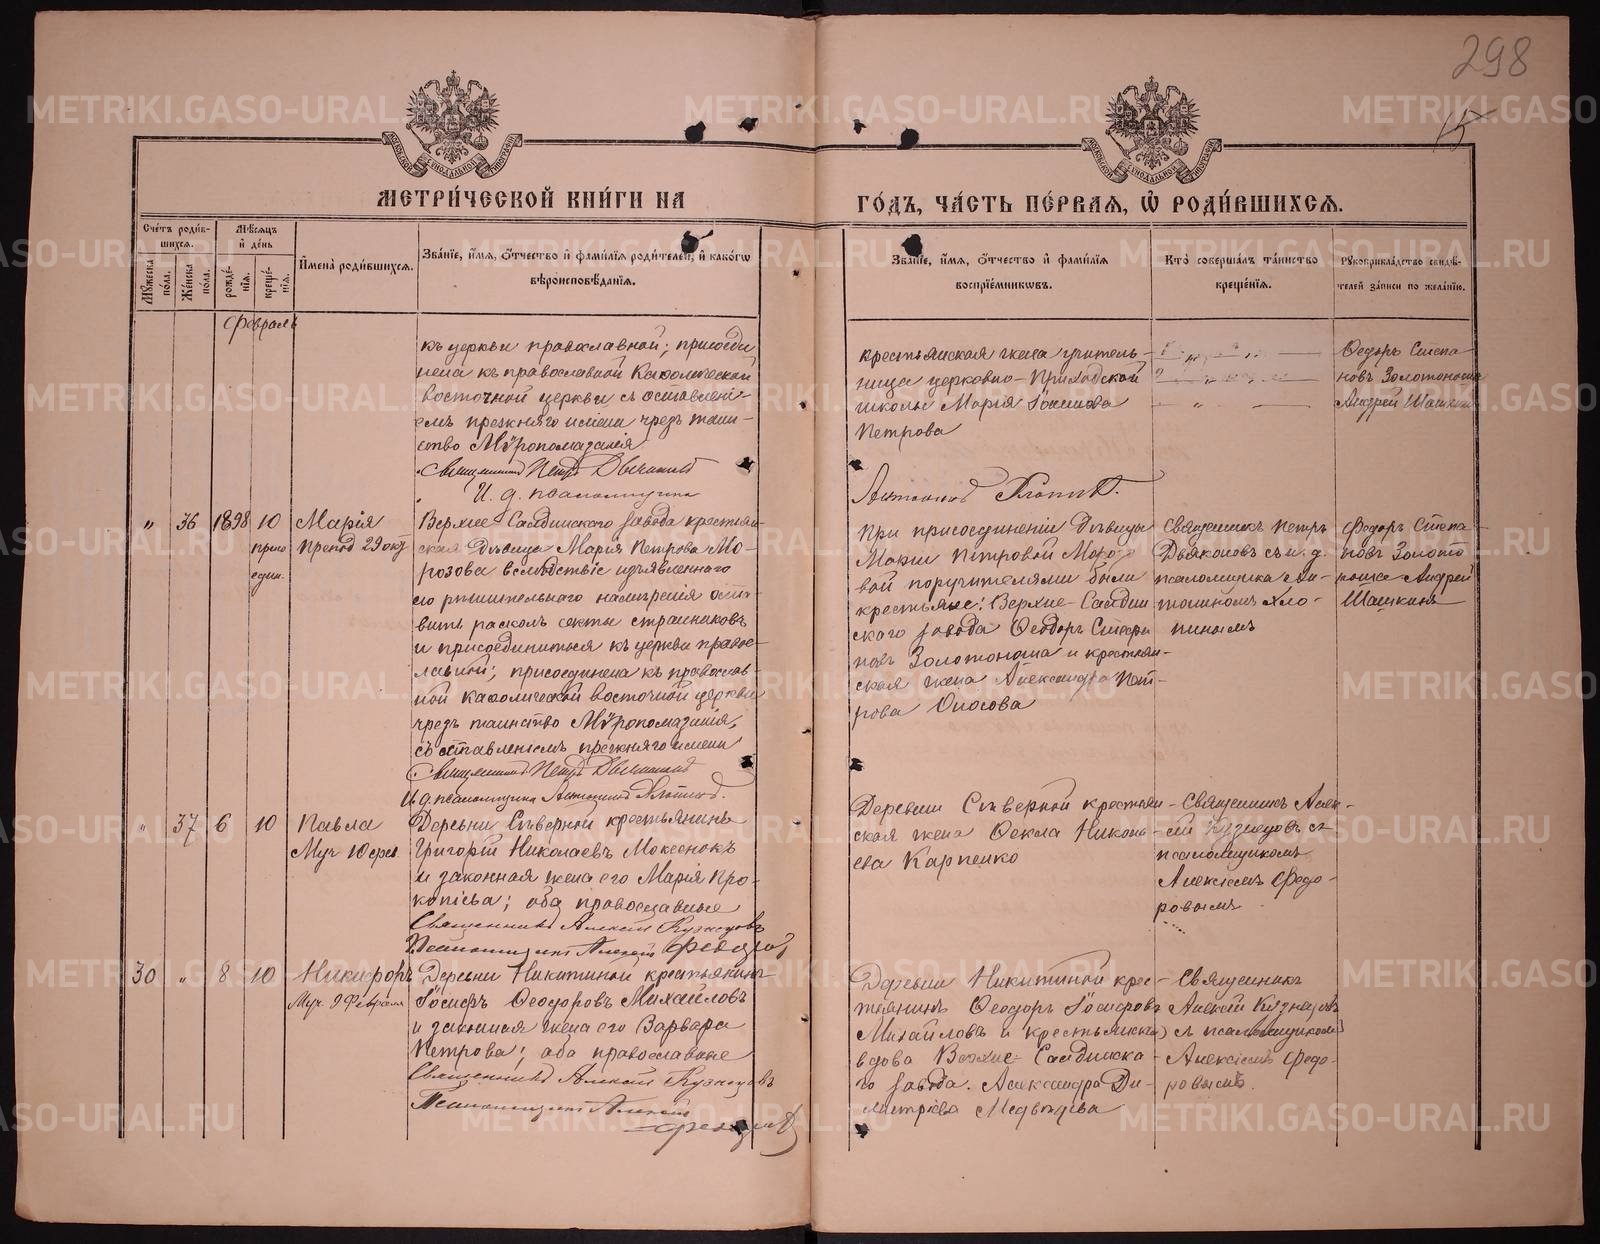 298
15
МЕТРИ́ЧЕСКОЙ КНИ́ГИ НА
ГО́ДЪ, ЧА́СТЬ ПЕ́РВАЯ, Ѡ РОДИ́ВШИХСЯ.
Сче́тъ роди́в-
шихся.
Мѣ́сяцъ
и де́нь
Му́жеска по́ла.
Же́нска по́ла.
рожде́нїя.
креще́нїя.
И҆мена̀ роди́вшихся.
Зва́нїе, и҆́мя, ѻ҆́тчество и҆ фами́лїя роди́телей, и҆ како́гѡ
вѣроисповѣ́данїя.
Зва́нїе, и҆́мя, ѻ҆́тчество и҆ фами́лїя
воспрїе́мникѡвъ.
Кто̀ соверша́лъ та́инство
креще́нїя.
Рꙋкоприкла́дство свидѣ́-
телей за́писи по жела́нїю.
Февраль
къ церкви православной; присоеди
нена къ православной Каѳолической
восточной церкви съ оставлені-
емъ прежняго имени чрезъ таин-
ство Мѵропомазанія
Священникъ Петръ Дьяконовъ
И. д. псаломщика
крестьянская жена учитель-
ница церковно-Приходской
школы Марія Іосифова
Петрова
Антонинъ Хлопинъ.
Ѳедоръ Степа
новъ Золотоноша
Андрей Шашкинъ
" 36 1898 10
присо
един.
Марія
Препод 29 окт
Верхне Салдинского завода крестьян-
ская дѣвица Марія Петрова Мо-
розова вслѣдствіе изъявленнаго
ею рѣшительнаго намѣренія оста-
вить расколъ секты странниковъ
и присоединиться къ церкви право-
славной; присоединена къ православ-
ной каѳолической восточной церкви
чрезъ таинство Мѵропомазанія,
съ оставленіемъ прежняго имени
Священникъ Петръ Дьяконовъ
И. д. псаломщика Антонинъ Хлопинъ.
При присоединеніи дѣвицы
Маріи Петровой Морозо-
вой поручителями были
крестьяне: Верхне-Салдин
ского завода Ѳеодоръ Степа
новъ Золотоноша и крестьян-
ская жена Александра Пет-
рова Оносова
Священникъ Петръ
Дьяконовъ съ и. д.
псаломщика Ан-
тониномъ Хло-
пинымъ
Ѳедоръ Степа-
новъ Золото
ноша Андрей
Шашкинъ
" 37 6 10
Павла
Муч 10 фев.
Деревни Сѣверной крестьянинъ
Григорій Николаевъ Моксенокъ
и законная жена его Марія Про-
копіева; оба православные
Священникъ Алексій Кузнецовъ
Псаломщикъ Алексій Федоровъ
Деревни Сѣверной крестьян-
ская жена Ѳекла Никола-
ева Карпенко
Священникъ Алек-
сій Кузнецовъ съ
псаломщикомъ
Алексіемъ Федо-
ровымъ
30 " 8 10
Никифоръ
Муч. 9 Февраля
Деревни Никитиной крестьянинъ
Іосифъ Ѳеодоровъ Михайловъ
и законная жена его Варвара
Петрова; оба православные
Священникъ Алексій Кузнецовъ
Псаломщикъ Алексій
Федоровъ
Деревни Никитиной крес-
тьянинъ Ѳеодоръ Іосифовъ
Михайловъ и крестьянская
вдова Верхне-Салдинска-
го завода Александра Ди-
митріева Медвѣдева
Священникъ
Алексій Кузнецовъ
съ псаломщикомъ
Алексіемъ Федо-
ровымъ.